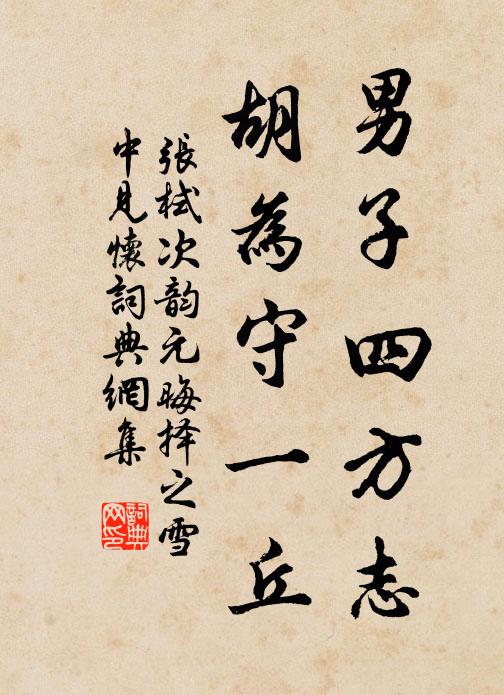 男子四方志
胡為守一丘
張栻次韵元晦择之雪
中見懷詞典網集
詞典
网印